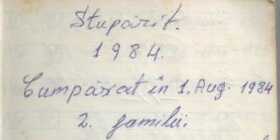 Stupărit.
1984.
Cumpărat în 1. Aug. 1984
2. familii.